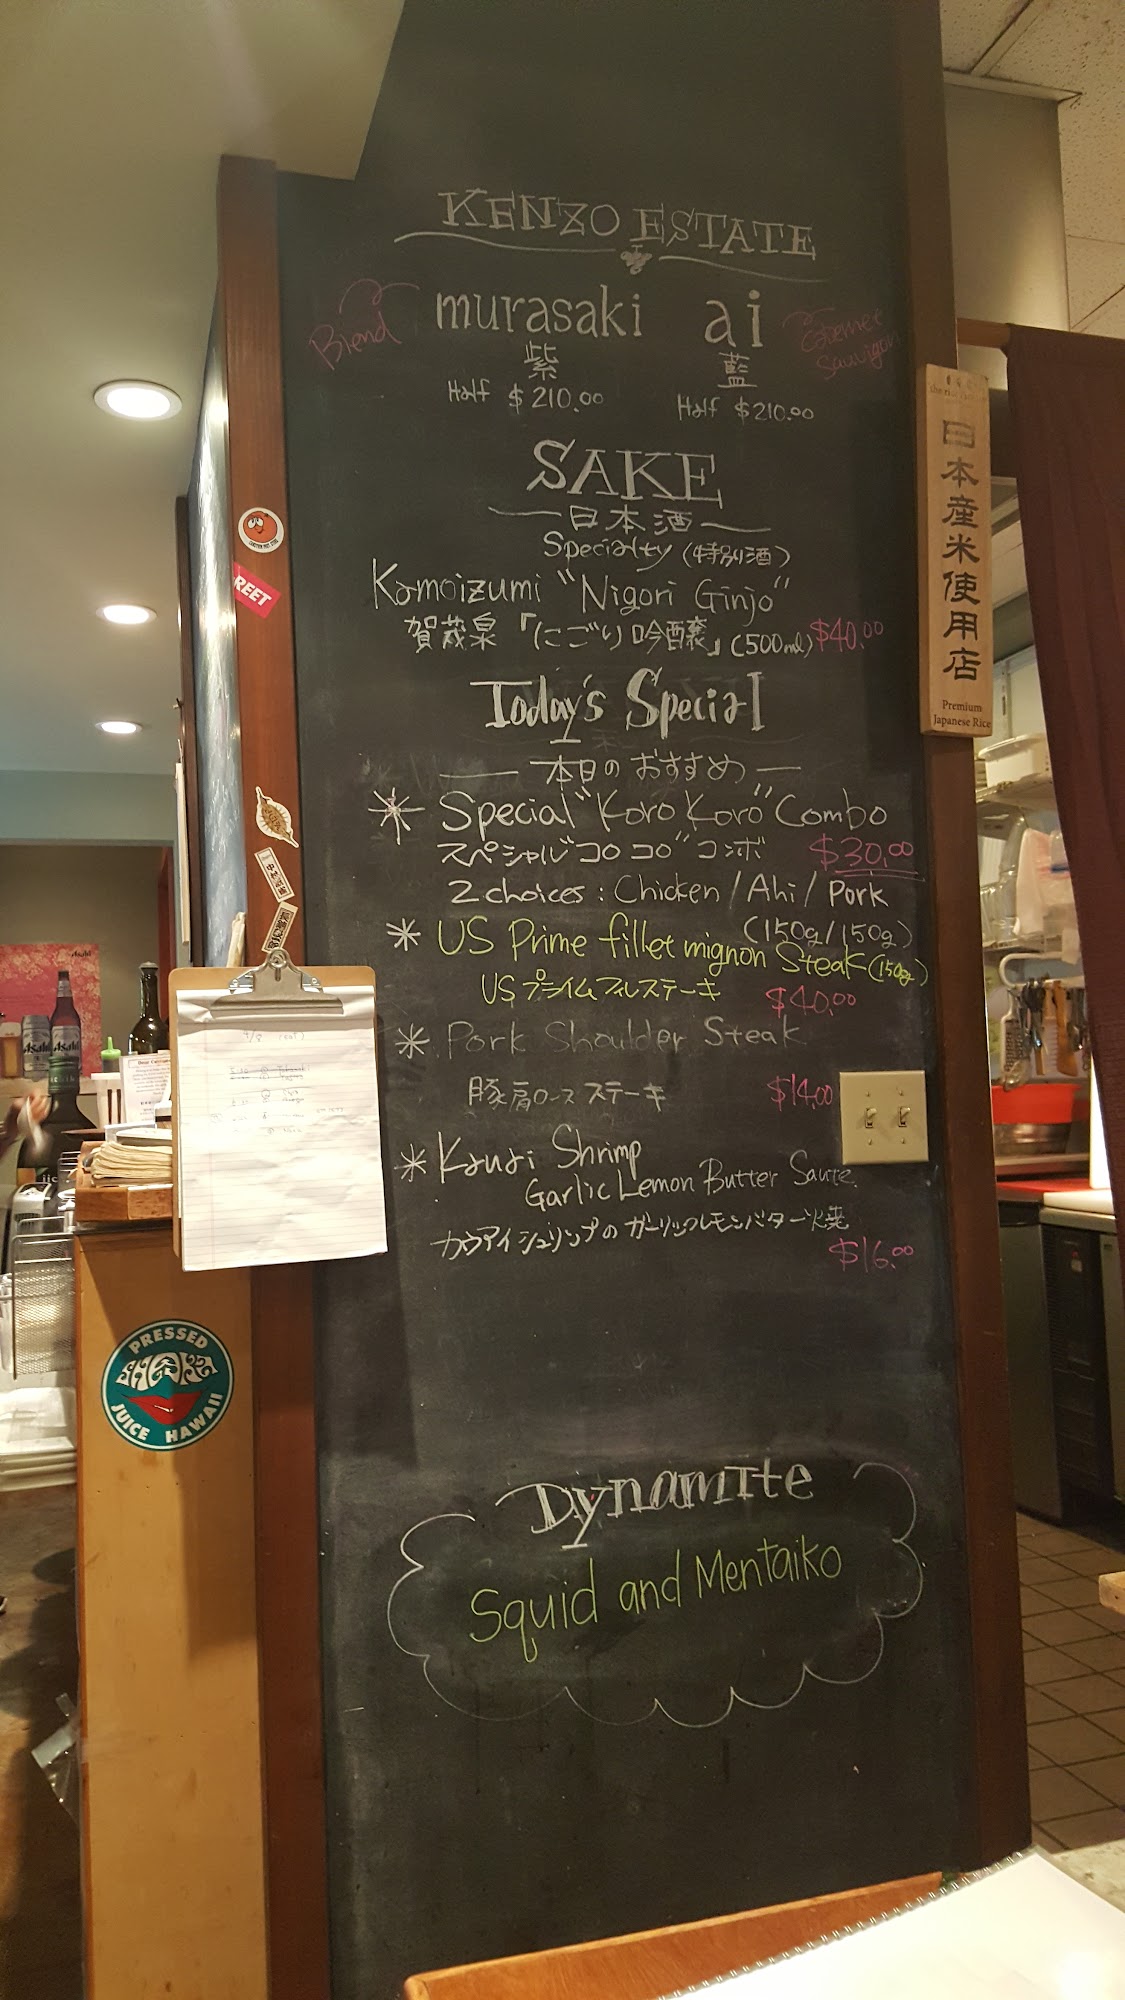 KENZO ESTATE
Blend
murasaki
ai
Cabernet
Sauvignon
紫
藍
Half $210.00
Half $210.00
SAKE
日本酒
Specialty (特別酒)
Kamoizumi "Nigori Ginjo"
賀茂泉「にごり吟醸」(500ml) $40.00
Today's Special
本日のおすすめ
Special "Koro Koro" Combo
スペシャル"コロコロ"コンボ $30.00
2 choices : Chicken / Ahi / Pork
(150g/150g)
US Prime fillet mignon Steak (150g)
USプライムフィレステーキ $40.00
Pork Shoulder Steak
豚肩ロースステーキ $14.00
Kauai Shrimp
Garlic Lemon Butter Saute
カウアイシュリンプのガーリックレモンバター炒
$16.00
Dynamite
Squid and Mentaiko
日本産米使用店
Premium
Japanese Rice
REET
Asahi
PRESSED
JUICE HAWAII